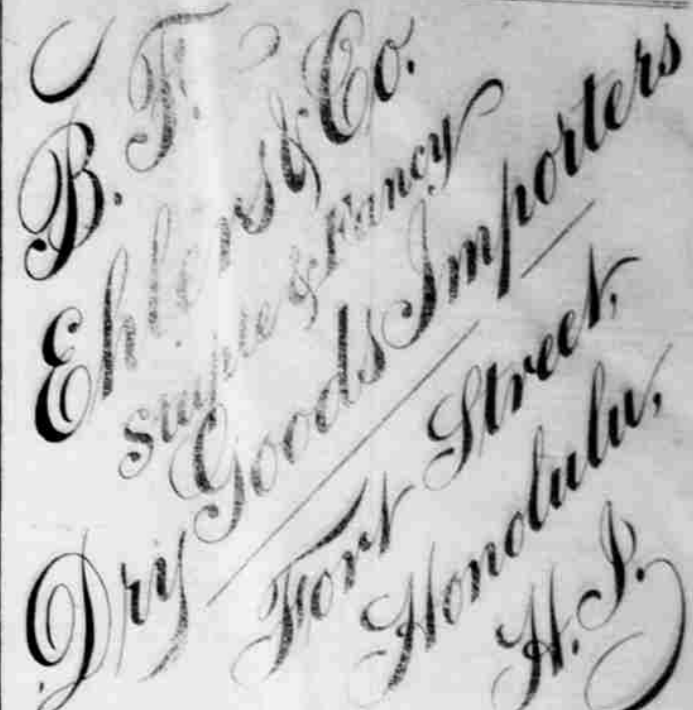 B. F.
Ehlers & Co.
Staple & Fancy
Dry Goods Importers
Fort Street,
Honolulu,
H. I.